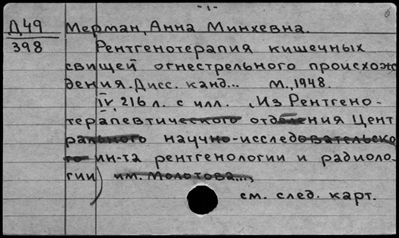 -1-
Д49 Мерман, Анна Минхевна.
398
Рентгенотерапия кишечных
свищей огнестрельного происхож-
дения. Дисс. канд... М., 1948.
IV, 216 л. с илл. (Из Рентгено-
терапевтического отделения Цент
рального научно-исследовательско
го ин-та рентгенологии и радиоло-
гии) им. Молотова...,
см. след. карт.